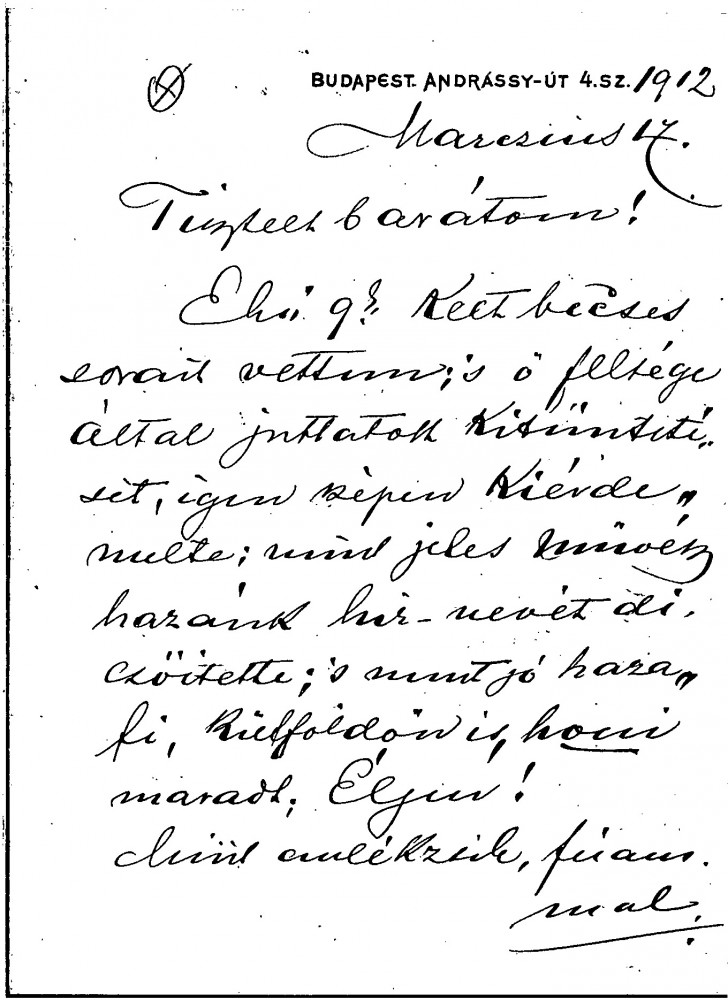 BUDAPEST. ANDRÁSSY-ÚT 4.SZ. 1912
Marczius 17.
Tisztelt barátom!
Kelt becses
sorait vettem; 's ő felsége
által juttatott kitünteté„
sét, igen szépen kiérde„
melte; mint jeles művész
hazánk hír-nevét di,
csőitette; 's mint jó haza„
fi, külföldön is, honi
maradt. Éljen!
Mint emlékszik,